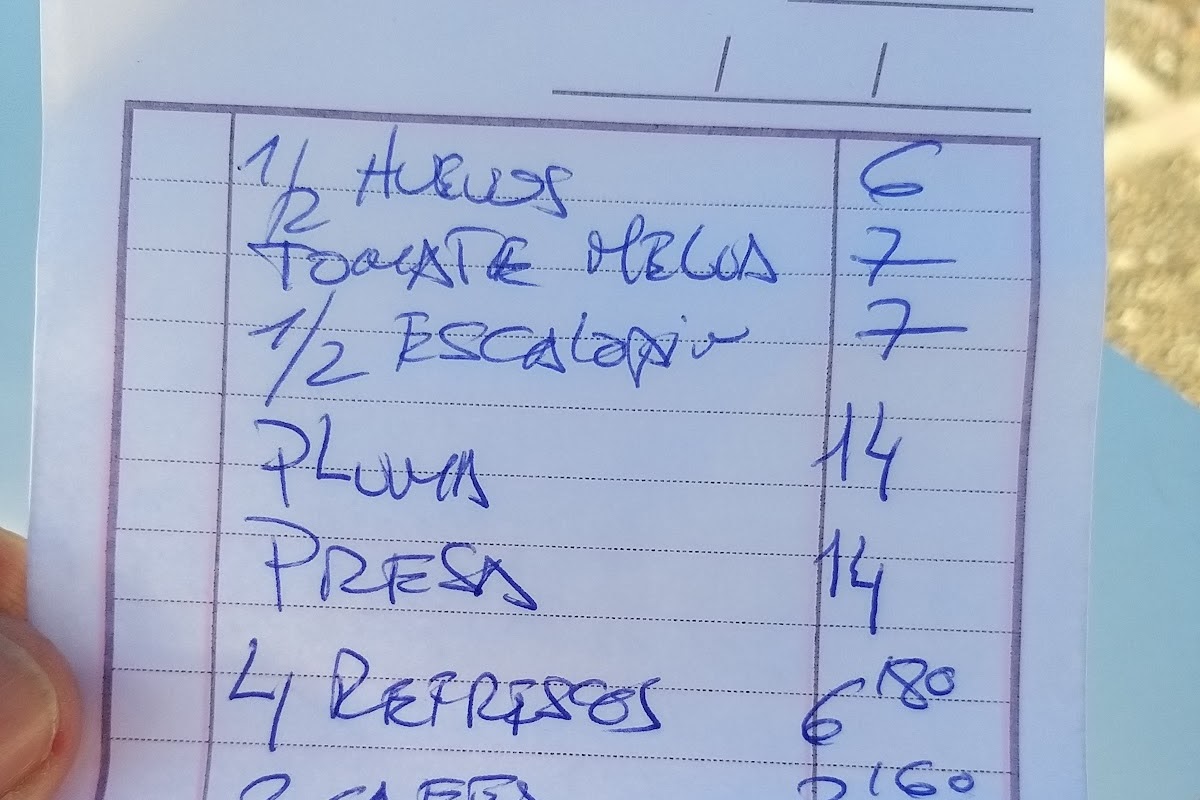 1/2 HUEVOS 6
TOMATE MELVA 7
1/2 ESCALOPIN 7
PLUMA 14
PRESA 14
4 REFRESCOS 6'80
2 CAFES 2'60